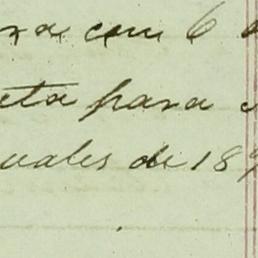 ra com 6
eta para
uales de 189